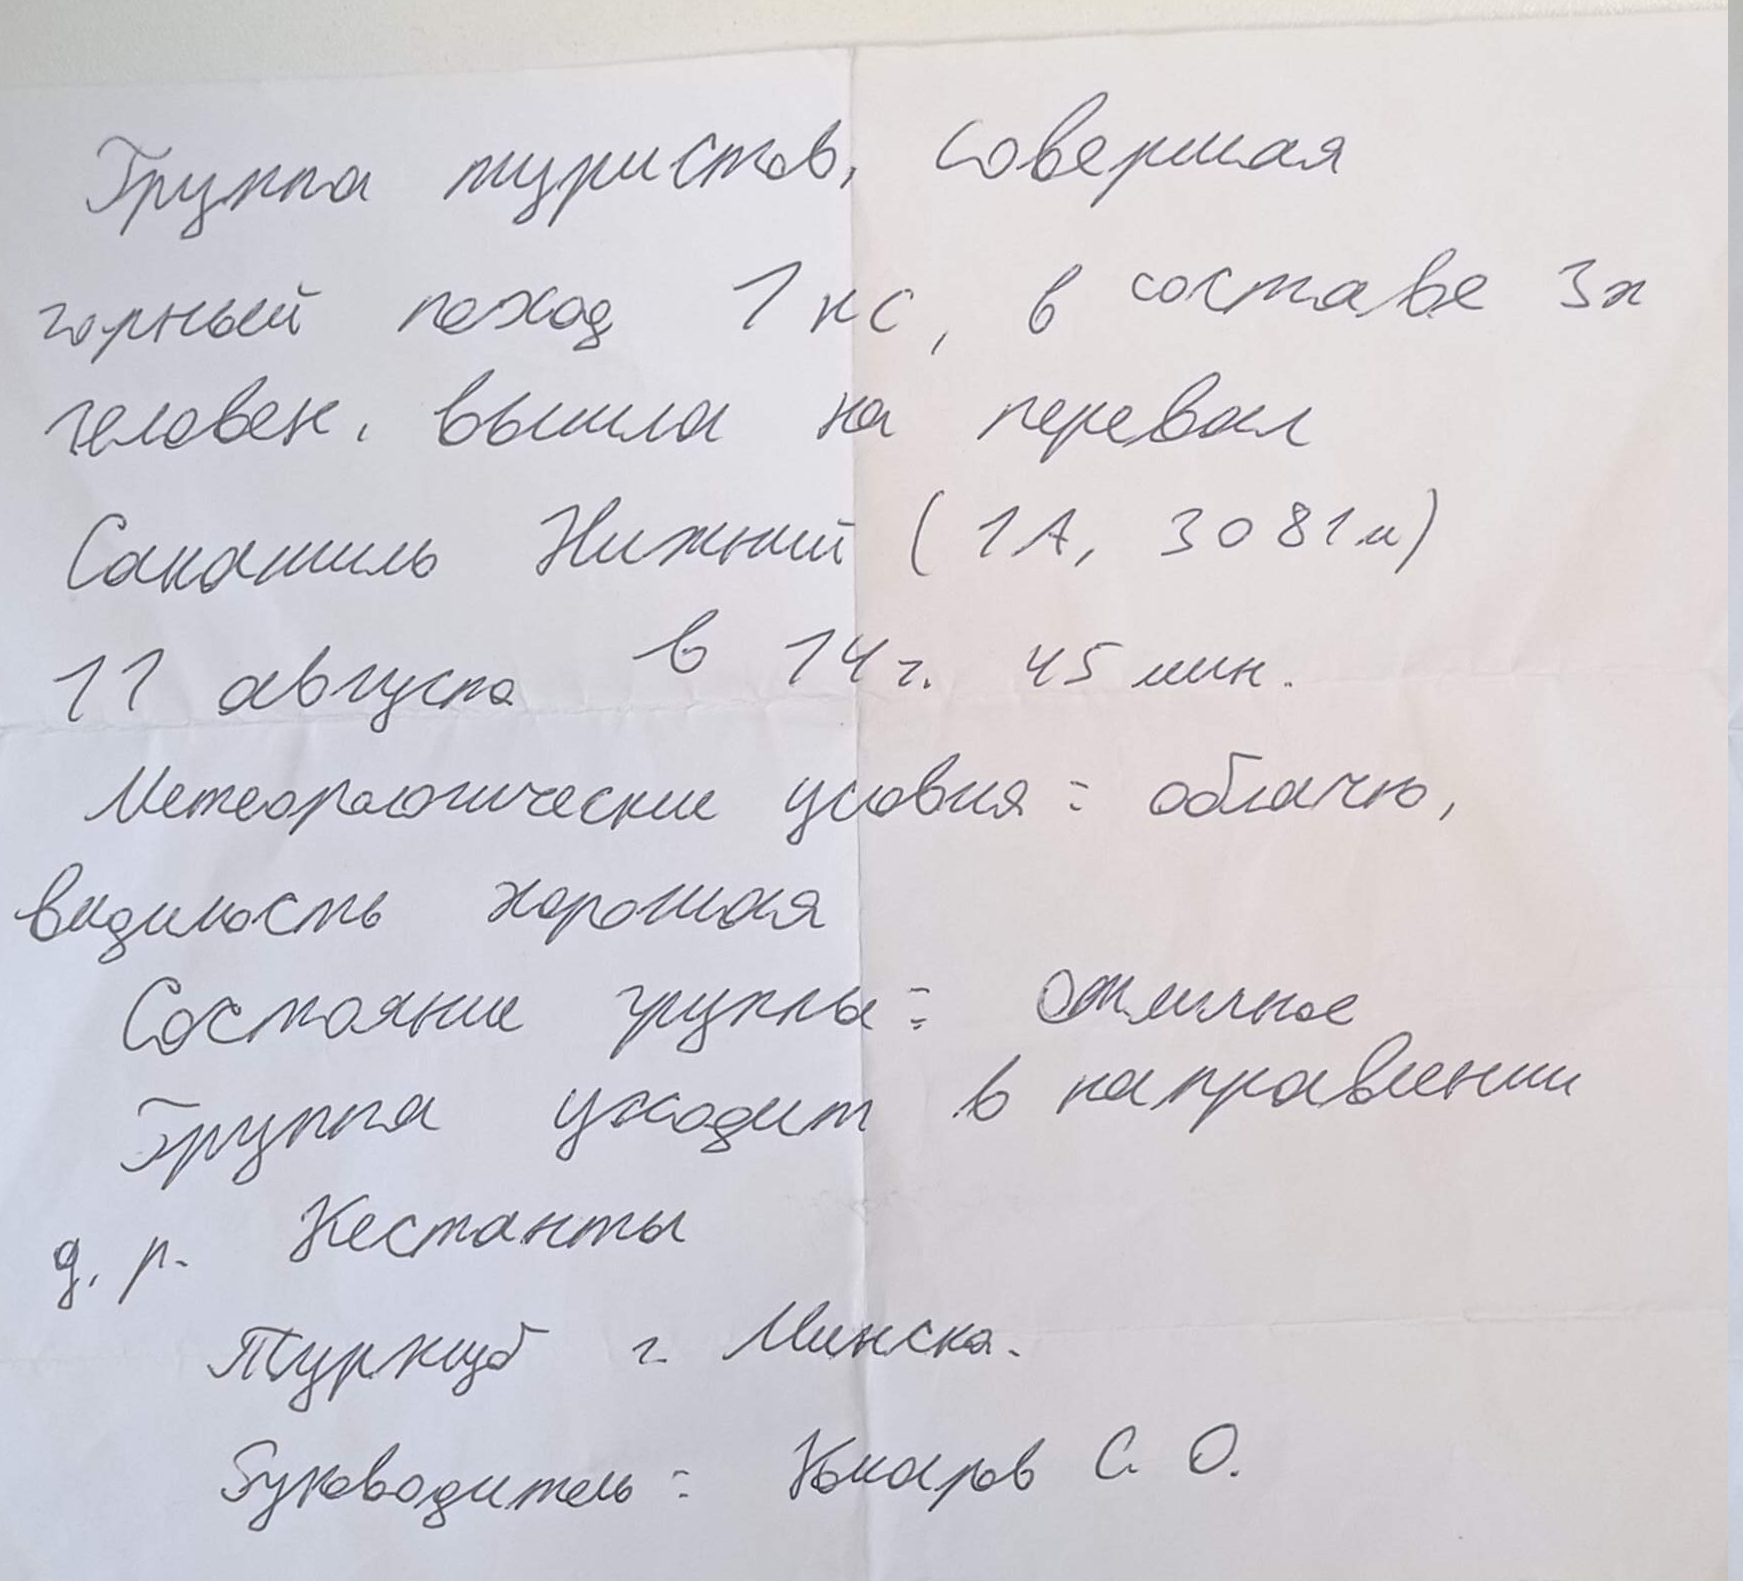 Группа туристов, совершая
горный поход 1 кс, в составе 3х
человек, вышла на перевал
Сакашиль Нижний (1А, 3081м)
11 августа в 14 ч. 45 мин.
Метеорологические условия: облачно,
видимость хорошая
Состояние группы: отличное
Группа уходит в направлении
д. р. Кестанты
Турклуб г. Минска.
Руководитель: Комаров С. О.